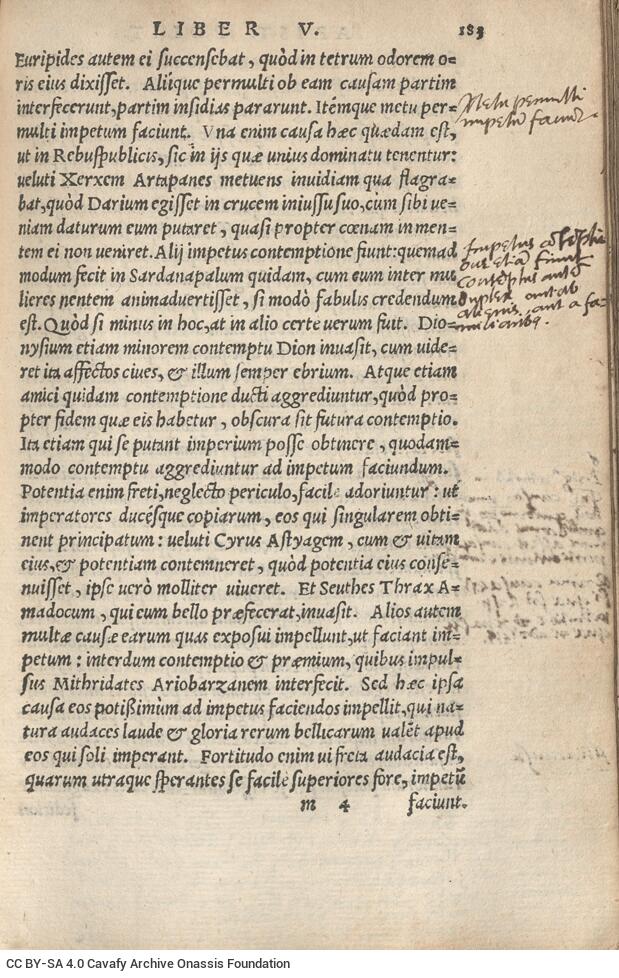 LIBER V. 183
Euripides autem ei succensebat, quòd in tetrum odorem o=
ris eius dixisset. Alijque permulti ob eam causam partim
interfecerunt, partim insidias pararunt. Itémque metu per=
multi impetum faciunt. Vna enim causa hæc quædam est,
ut in Rebuspublicis, sic in ijs quæ unius dominatu tenentur:
veluti Xerxem Artapanes metuens invidiam qua flagra=
bat, quòd Darium egisset in crucem iniussu suo, cùm sibi ue=
niam daturum eum putaret, quasi propter cœnam in men=
tem ei non veniret. Alij impetus contemptione fiunt: quemad
modum fecit in Sardanapalum quidam, cum eum inter mu
lieres nentem animadvertisset, si modò fabulis credendum
est. Quòd si minus in hoc, at in alio certe verum fuit. Dio=
nysium etiam minorem contemptu Dion invasit, cum uide=
ret ita affectos cives, & illum semper ebrium. Atque etiam
amici quidam contemptione ducti aggrediuntur, quòd pro=
pter fidem quæ eis habetur, obscura sit futura contemptio.
Ita etiam qui se putant imperium posse obtinere, quodam=
modo contemptu aggrediuntur ad impetum faciundum.
Potentia enim freti, neglecto periculo, facile adoriuntur: ut
imperatores ducésque copiarum, eos qui singularem obti=
nent principatum: veluti Cyrus Astyagem, cum & uitam
eius, & potentiam contemneret, quòd potentia eius conse=
nuisset, ipse verò molliter viveret. Et Seuthes Thrax A=
madocum, qui eum bello præfecerat, invasit. Alios autem
multæ causæ earum quas exposui impellunt, ut faciant im=
petum: interdum contemptio & præmium, quibus impul=
sus Mithridates Ariobarzanem interfecit. Sed hæc ipsa
causa eos potißimùm ad impetus faciendos impellit, qui na=
tura audaces laude & gloria rerum bellicarum valẽt apud
eos qui soli imperant. Fortitudo enim ui freta audacia est,
quarum utraque sperantes se facile superiores fore, impetũ
m 4 faciunt.
Metu permulti
impetũ faciũt
Impetus
etiã fiunt
duplex aut ab
alienis, aut a fa=
CC BY-SA 4.0 Cavafy Archive Onassis Foundation